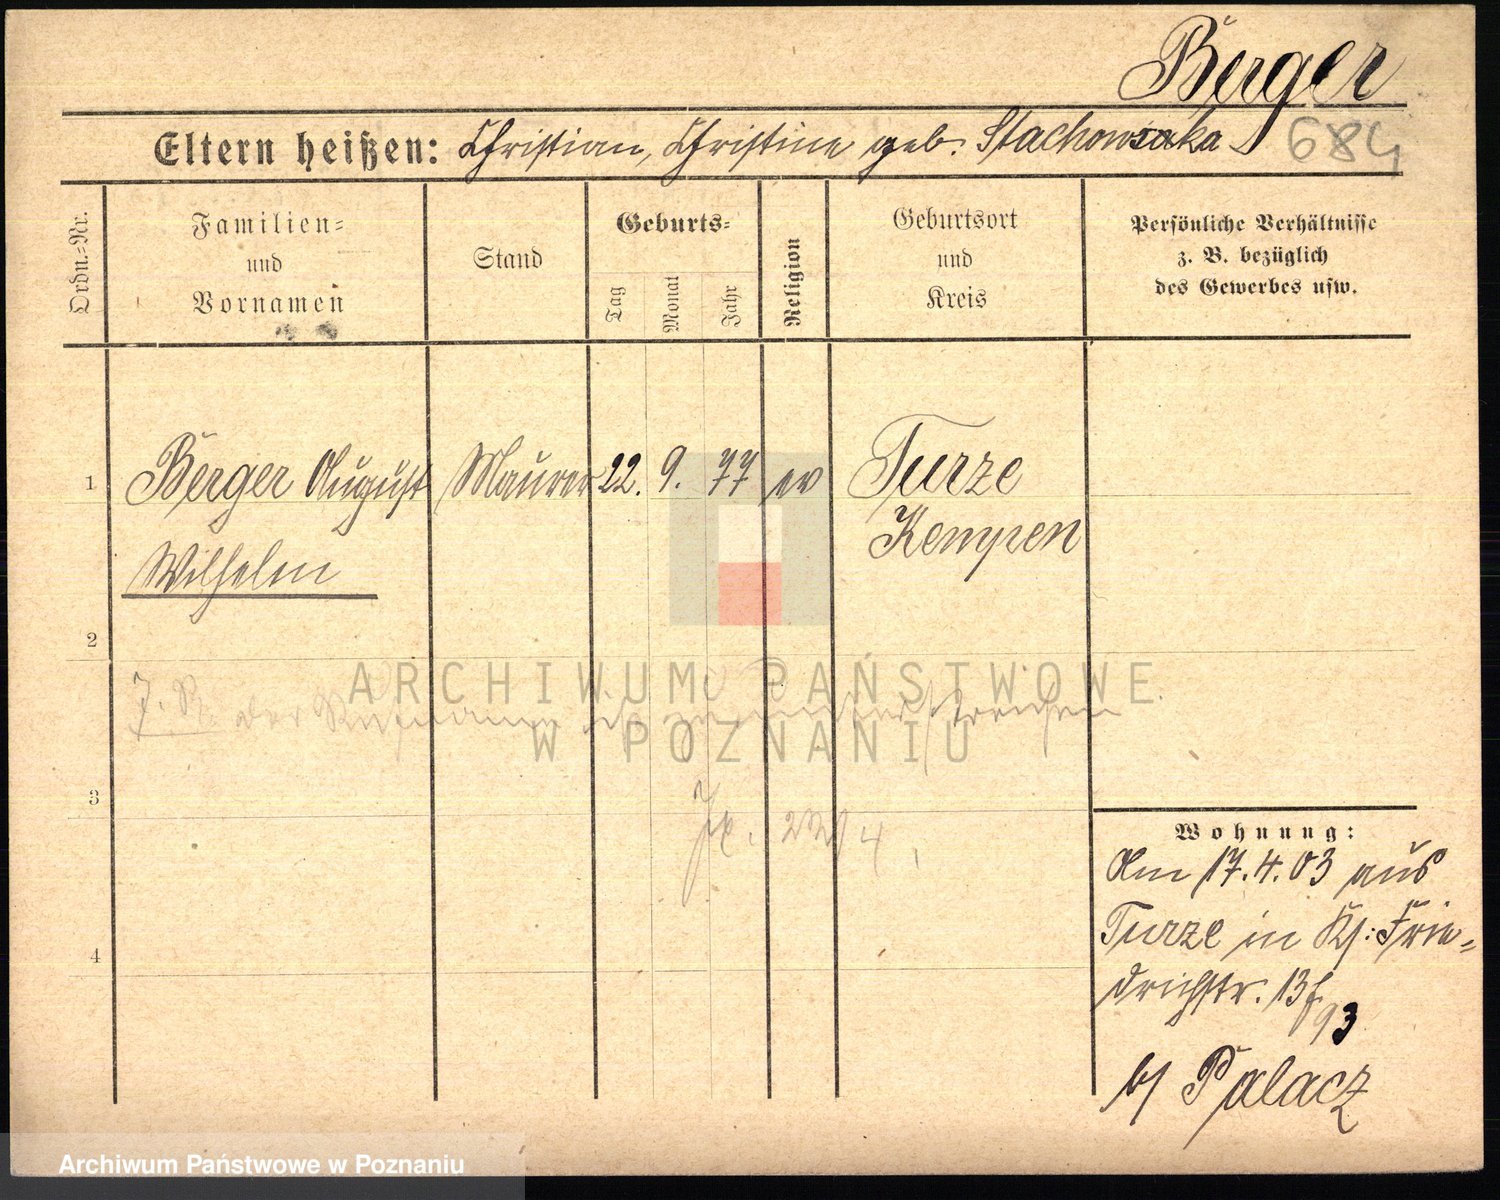 Berger
Eltern heißen: Christian, Christine geb. Stachowska
684
Ordn.-Nr.
Familien-
und
Vornamen
Stand
Geburts-
Tag
Monat
Jahr
Religion
Geburtsort
und
Kreis
Persönliche Verhältnisse
z. B. bezüglich
des Gewerbes usw.
1
Berger August
Wilhelm
Maurer
22.
9.
77
ev
Turze
Kempen
2
ARCHIWUM PAŃSTWOWE
W POZNANIU
der
3
4
Wohnung:
Am 17.4.03 aus
Turze in Frie-
drichstr. 13
93
b/ Palacz
Archiwum Państwowe w Poznaniu